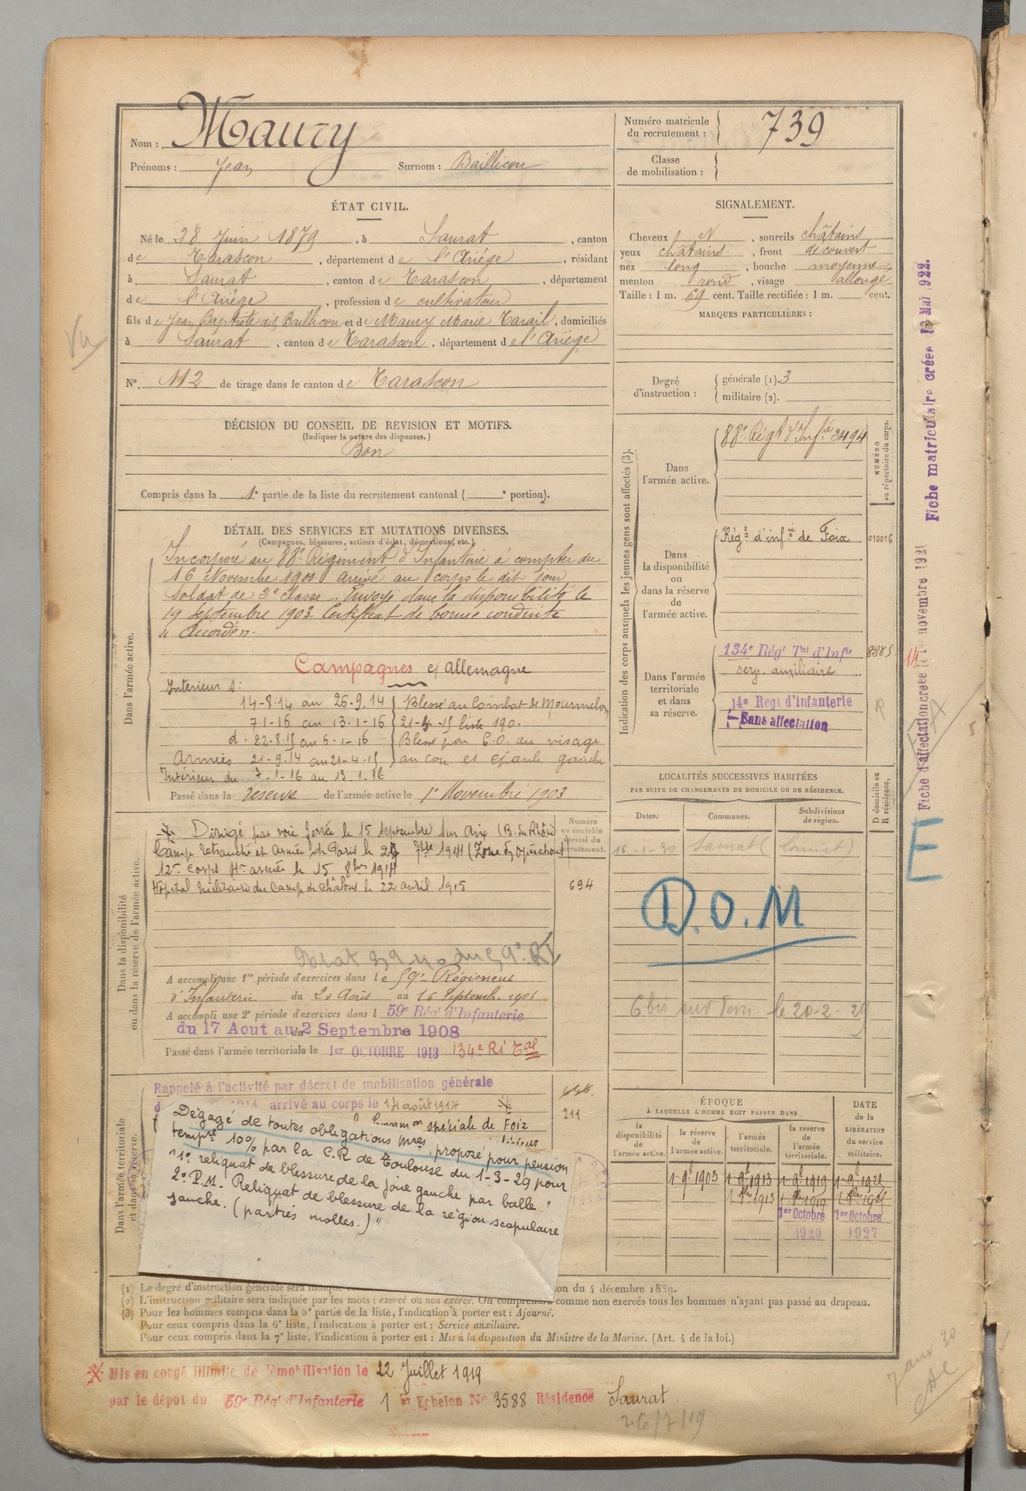 Nom : Maury
Prénoms : Jean Surnom : Baillicou
Numéro matricule du recrutement : 739
Classe de mobilisation :
ÉTAT CIVIL.
Né le 28 Juin 1879, à Saurat, canton
de Tarascon, département de l'Ariège, résidant
à Saurat, canton de Tarascon, département
de l'Ariège, profession de cultivateur
fils de Jean Baptiste dit Baillicou et de Maury Marie Tarail, domiciliés
à Saurat, canton de Tarascon, département de l'Ariège
Vu
N° 112 de tirage dans le canton de Tarascon
SIGNALEMENT.
Cheveux N, sourcils châtains
yeux châtains, front découvert
nez long, bouche moyenne
menton rond, visage allongé
Taille : 1 m. 69 cent. Taille rectifiée : 1 m. cent.
MARQUES PARTICULIÈRES :
Degré d'instruction : générale (1). 3
militaire (2).
DÉCISION DU CONSEIL DE REVISION ET MOTIFS.
(Indiquer la nature des dispenses.)
Bon
Compris dans la 1e partie de la liste du recrutement cantonal ( e portion).
DÉTAIL DES SERVICES ET MUTATIONS DIVERSES.
(Campagnes, blessures, actions d'éclat, décorations, etc.)
Dans l'armée active.
Incorporé au 88e Régiment d'Infanterie à compter du
16 Novembre 1900 arrivé au corps le dit jour
soldat de 2e classe. Envoyé dans la disponibilité le
19 septembre 1903. Certificat de bonne conduite
a Accordé.
Campagnes c/ Allemagne
Interieur :
14-8-14 au 26-9-14 Blessé au Combat de Mourmelon
7-1-16 au 13-1-16 21-4-15 liste 190.
d° 22-8-15 au 5-1-16 Blessé par E.O. au visage
Armées 21-9-14 au 21-4-15 au cou et épaule gauche
Intérieur du 7-1-16 au 13-1-16
Passé dans la réserve de l'armée active le 1er Novembre 1903
Indication des corps auxquels les jeunes gens sont affectés (3).
NUMÉRO au répertoire du corps.
Dans l'armée active. 88e Régt d'Infie 2494
Dans la disponibilité ou dans la réserve de l'armée active. Régt d'infie de Foix 010016
Dans l'armée territoriale et dans sa réserve. 134e Régt Tal d'Infie
serv. auxiliaire
14e Regt d'Infanterie
Sans affectation
R
Fiche matriculaire créée 13 Mai 1922.
Fiche d'affectation créée le 14 novembre 1921
LOCALITÉS SUCCESSIVES HABITÉES
PAR SUITE DE CHANGEMENTS DE DOMICILE OU DE RÉSIDENCE.
Dates. Communes. Subdivisions de région. D domicile ou R résidence.
Saurat
D.O.M
E
le 20-2-29
Dans la disponibilité ou dans la réserve de l'armée active.
Numéro au contrôle spécial du recrutement.
Dirigé par voie ferrée le 15 septembre sur Aix (B. du Rhône)
Camp retranché et Armée de Paris le 7bre 1914 (Zone des Opérations)
12e corps 4e armée le 15 8bre 1914
Hôpital militaire du Camp de Châlons le 22 avril 1915 694
A accompli une 1re période d'exercices dans le 59e Régiment
d'Infanterie du 20 Août au 16 Septemb. 1906
A accompli une 2e période d'exercices dans l 59e Régt d'Infanterie
du 17 Aout au 2 Septembre 1908
Passé dans l'armée territoriale le 1er OCTOBRE 1913 134e RI Tal
Dans l'armée territoriale et dans sa réserve.
Rappelé à l'activité par décret de mobilisation générale
arrivé au corps le 14 août 1914
211
spéciale de Foix
Dégagé de toutes obligations mres, proposé pour pension
tempre 10% par la C.R de Toulouse du 1-3-29 pour
"1° reliquat de blessure de la joie gauche par balle."
2° P.M. Reliquat de blessure de la région scapulaire
gauche. (parties molles.)"
ÉPOQUE
À LAQUELLE L'HOMME DOIT PASSER DANS
la disponibilité de l'armée active. la réserve de l'armée active. l'armée territoriale. la réserve de l'armée territoriale. DATE de la LIBÉRATION du service militaire.
1er Octobre 1920 1er Octobre 1927
(1) Le degré d'instruction générale sera indiqué
on du 4 décembre 1889.
(2) L'instruction militaire sera indiquée par les mots : exercé ou non exercé. On comprendra comme non exercés tous les hommes n'ayant pas passé au drapeau.
(3) Pour les hommes compris dans la 5e partie de la liste, l'indication à porter est : Ajourné.
Pour ceux compris dans la 6e liste, l'indication à porter est : Service auxiliaire.
Pour ceux compris dans la 7e liste, l'indication à porter est : Mis à la disposition du Ministre de la Marine. (Art. 4 de la loi.)
Mis en congé illimité de démobilisation le 22 Juillet 1919
par le dépot du 59e Régt d'Infanterie 1er Echelon No 3588 Résidence Saurat
26/7/19